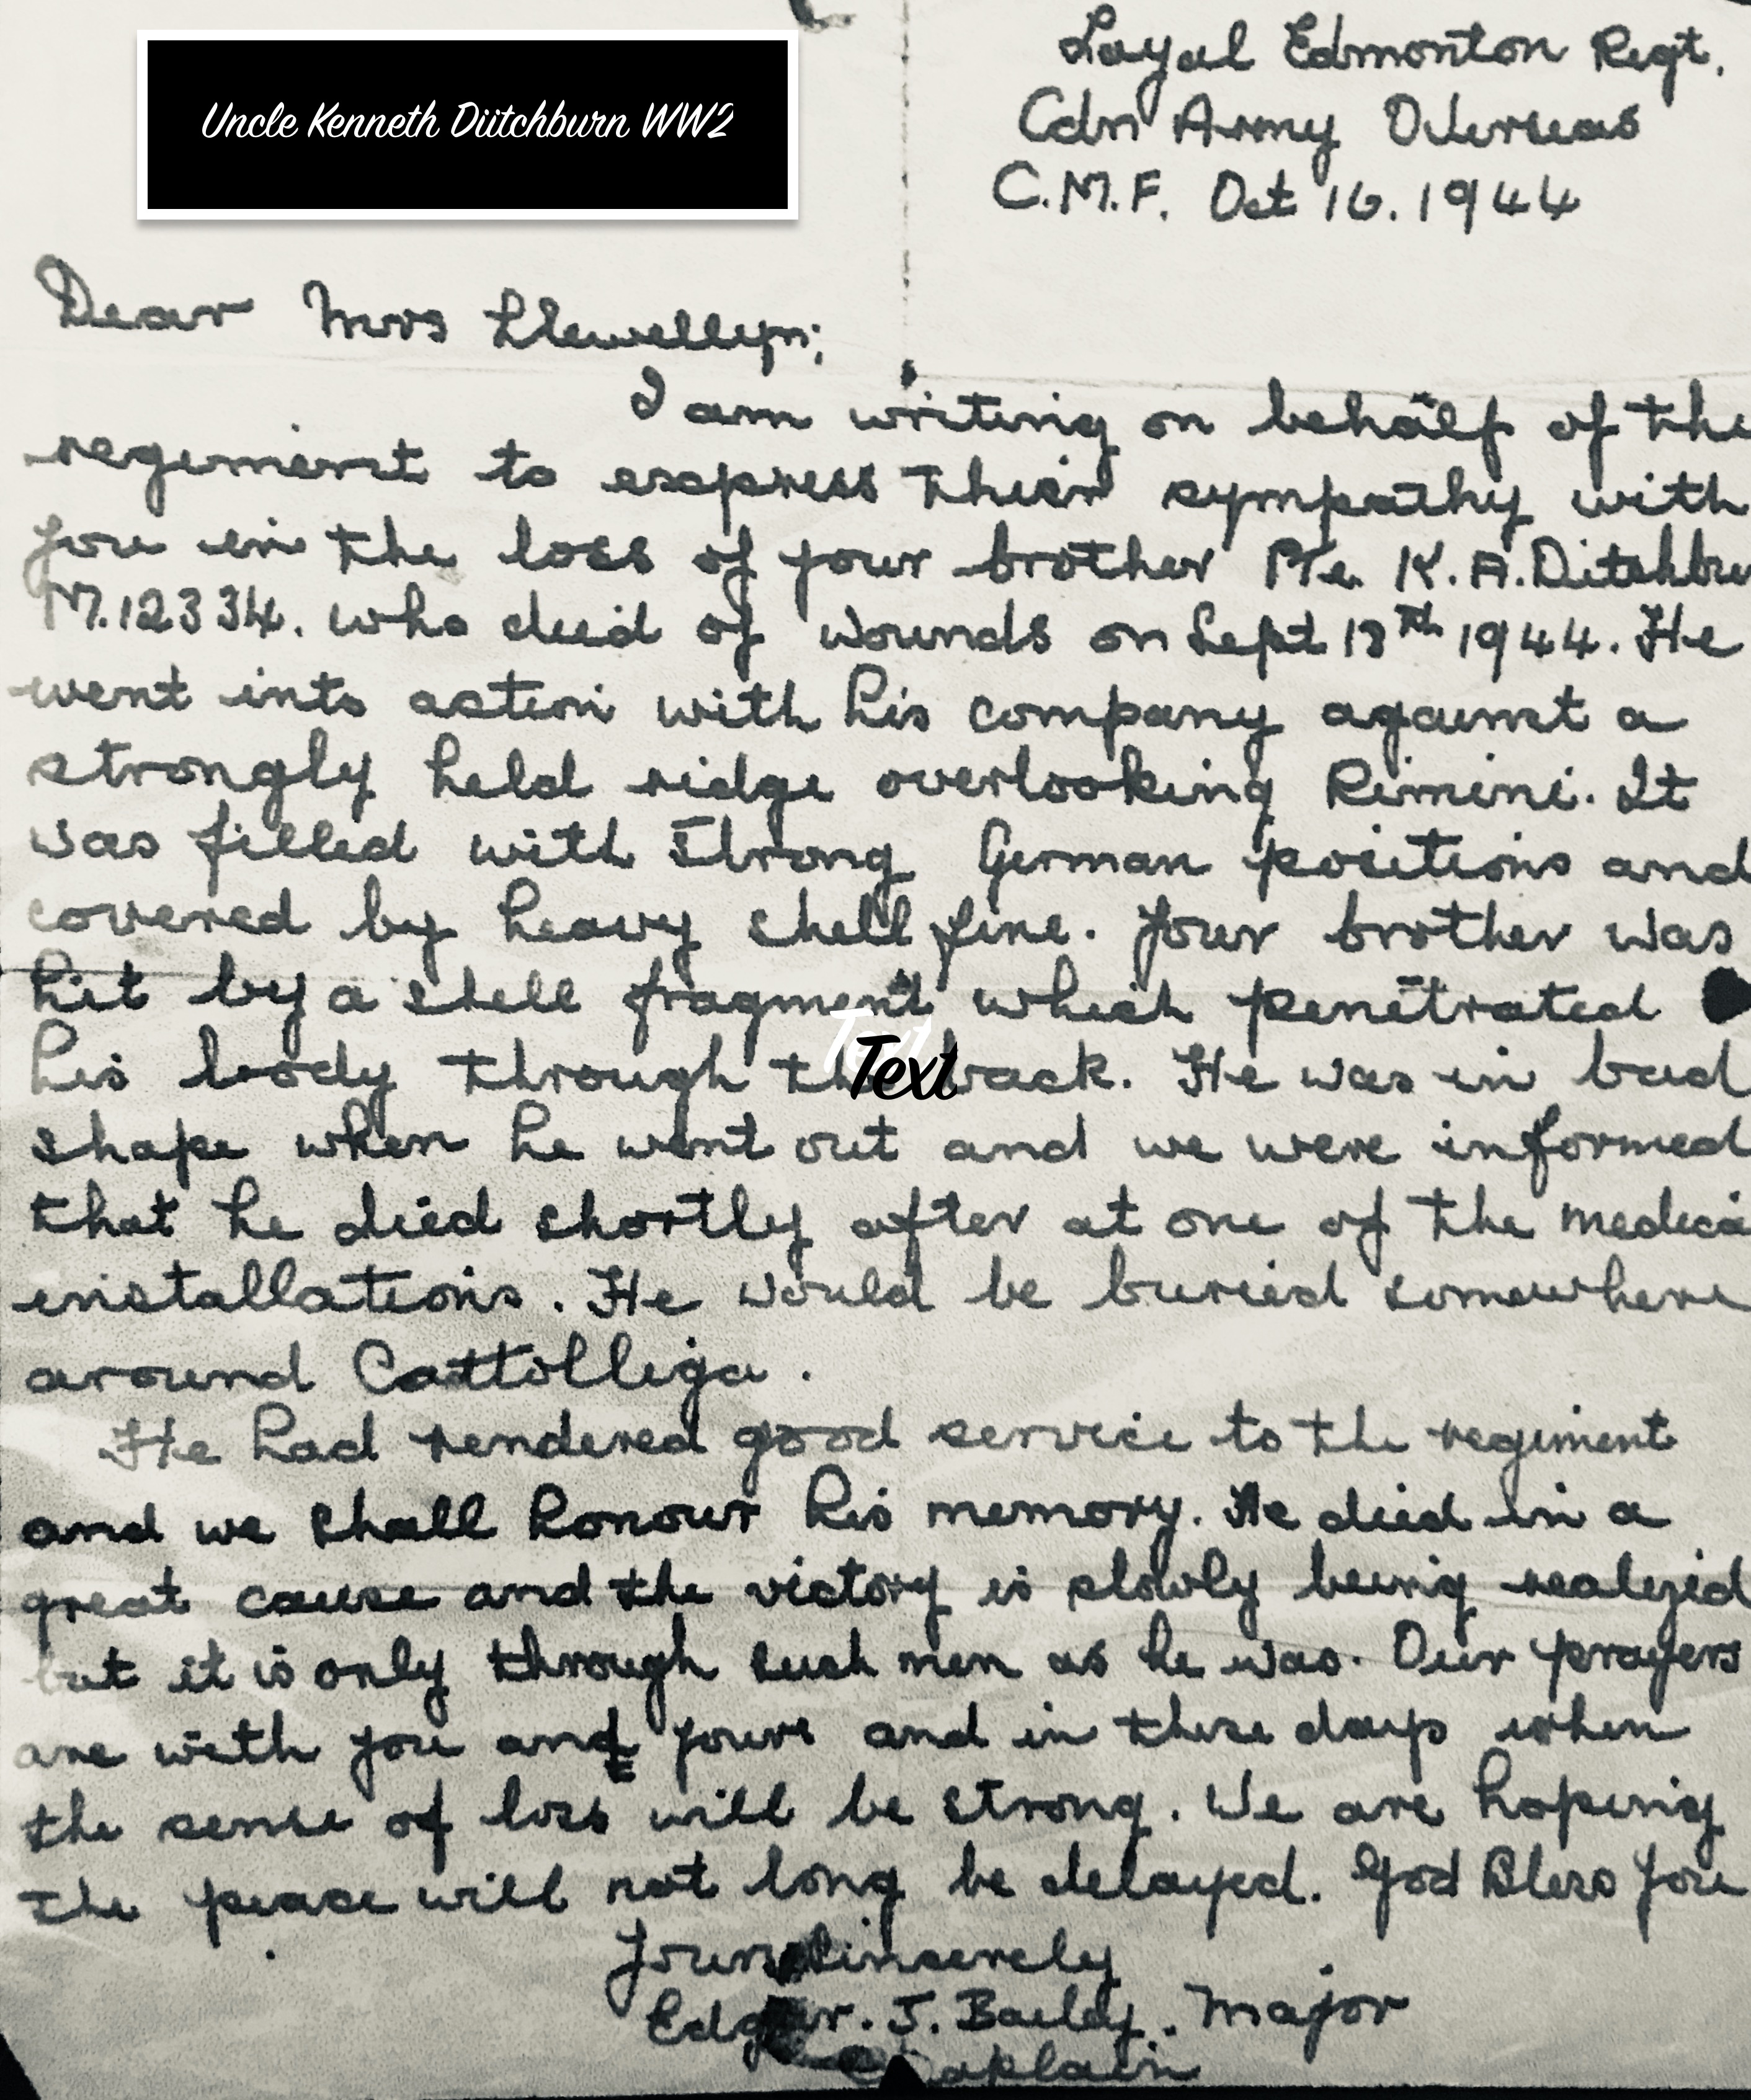 Uncle Kenneth Dütchburn WW2
Loyal Edmonton Regt.
Cdn Army Overseas
C.M.F. Oct 16. 1944
Dear Mrs Llewellyn;
I am writing on behalf of the
regiment to express their sympathy with
you in the loss of your brother Pte. K.A. Ditchbu
M.12334. who died of wounds on Sept 18th 1944. He
went into action with his company against a
strongly held ridge overlooking Rimini. It
was filled with strong German positions and
covered by heavy shell fire. Your brother was
hit by a shell fragment which penetrated
his body through the back. He was in bad
Text
shape when he went out and we were informed
that he died shortly after at one of the medica
installations. He would be buried somewhere
around Cattolliga.
He had rendered good service to the regiment
and we shall honour his memory. He died in a
great cause and the victory is slowly being realized
but it is only through such men as he was. Our prayers
are with you and yours and in these days when
the sense of loss will be strong. We are hoping
the peace will not long be delayed. God Bless you
Yours Sincerely
Edgar. J. Bailey. Major
Chaplain